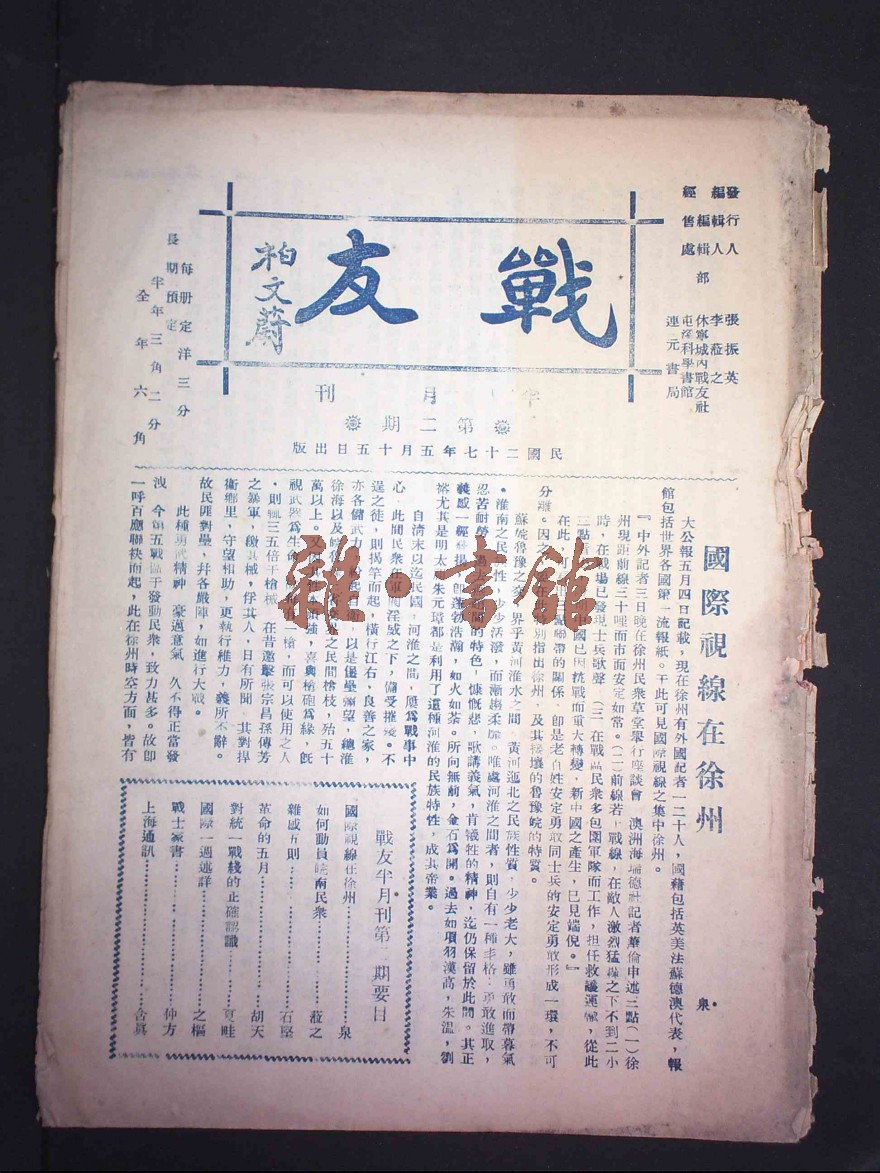 發行人 張振英
編輯人 李蒞之
編輯部 休寧城內戰友社
經售處 屯溪科學書館
連元書局
戰友
柏文蔚
每册定洋三分
長期預定
半年三角二分
全年六角
半月刊
第二期
民國二十七年五月十五日出版
國際視線在徐州
泉
大公報五月四日記載,現在徐州有外國記者一二十人,國籍包括英美法蘇德澳代表,報
館包括世界各國第一流報紙。于此可見國際視線之集中徐州。
『中外記者三日晚在徐州民衆草堂舉行座談會 澳洲海瑞德社記者華倫申述三點(一)徐
州現距前線三十哩而市面安定如常。(二)前線若,戰線,在敵人激烈猛轟之下不到二小
時,在戰場已發現士兵歌聲 (三)在戰區民衆多包圍軍隊而工作,担任救護運輸,從此
三點 中國已因抗戰而重大轉變,新中國之產生,已見端倪。』
在此,可 聯帶的關係,卽是老百姓安定勇敢同士兵的安定勇敢形成一環,不可
分離。因之 別指出徐州,及其接壤的魯豫皖的特質。
蘇皖魯豫之交,界乎黃河淮水之間 黃河迤北之民族性質,少少老大,雖勇敢而帶暮氣
。淮南之民 性,少活潑,而漸趨柔靡。唯處河淮之間者,則自有一種丰格:勇敢進取,
忍苦耐勞 過去 間的特色,慷慨悲歌講義氣,肯犧牲的精神,迄仍保留於此間。其正
義感一經 揚,卽蓬勃浩瀚,如火如荼。所向無前,金石爲開。過去如項羽漢高,朱溫,劉
裕尤其是明太 朱元璋都是利用了這種河淮的民族特性,成其帝業。
自清末以迄民國,河淮之間,屢爲戰事中
心 此間民衆在軍閥淫威之下,備受摧殘。不
逞之徒,則揭竿而起,橫行江右,良善之家,
亦各儲武力 以是堡壘彌望,總淮
徐海以及皖 之民間槍枝,殆五十
萬以上。又 性 強,喜與槍砲爲緣,旣
視武器爲生命 有一槍,而可以使用之人
,則輒三五倍于槍械 在昔邀擊張宗昌孫傳芳
之暴軍,繳其械,俘其人,日有所聞 其對捍
衛鄉里,守望相助,更執行維力,義所不辭。
故民匪對壘,幷各嚴陣,如進行大戰。
此種勇武精神 豪邁意氣 久不得正當發
洩 今 五戰區于發動民衆,致力甚多。故卽
一呼百應聯袂而起,此在徐州時空方面,皆有
戰友半月刊第二期要目
國際視線在徐州……泉
如何動員皖南民衆……蒞之
雜感五則……石堅
革命的五月……胡天
對統一戰綫的正確認識……夏畦
國際一週述詳……之樞
戰士家書……仲方
上海通訊……含眞
雜·書館